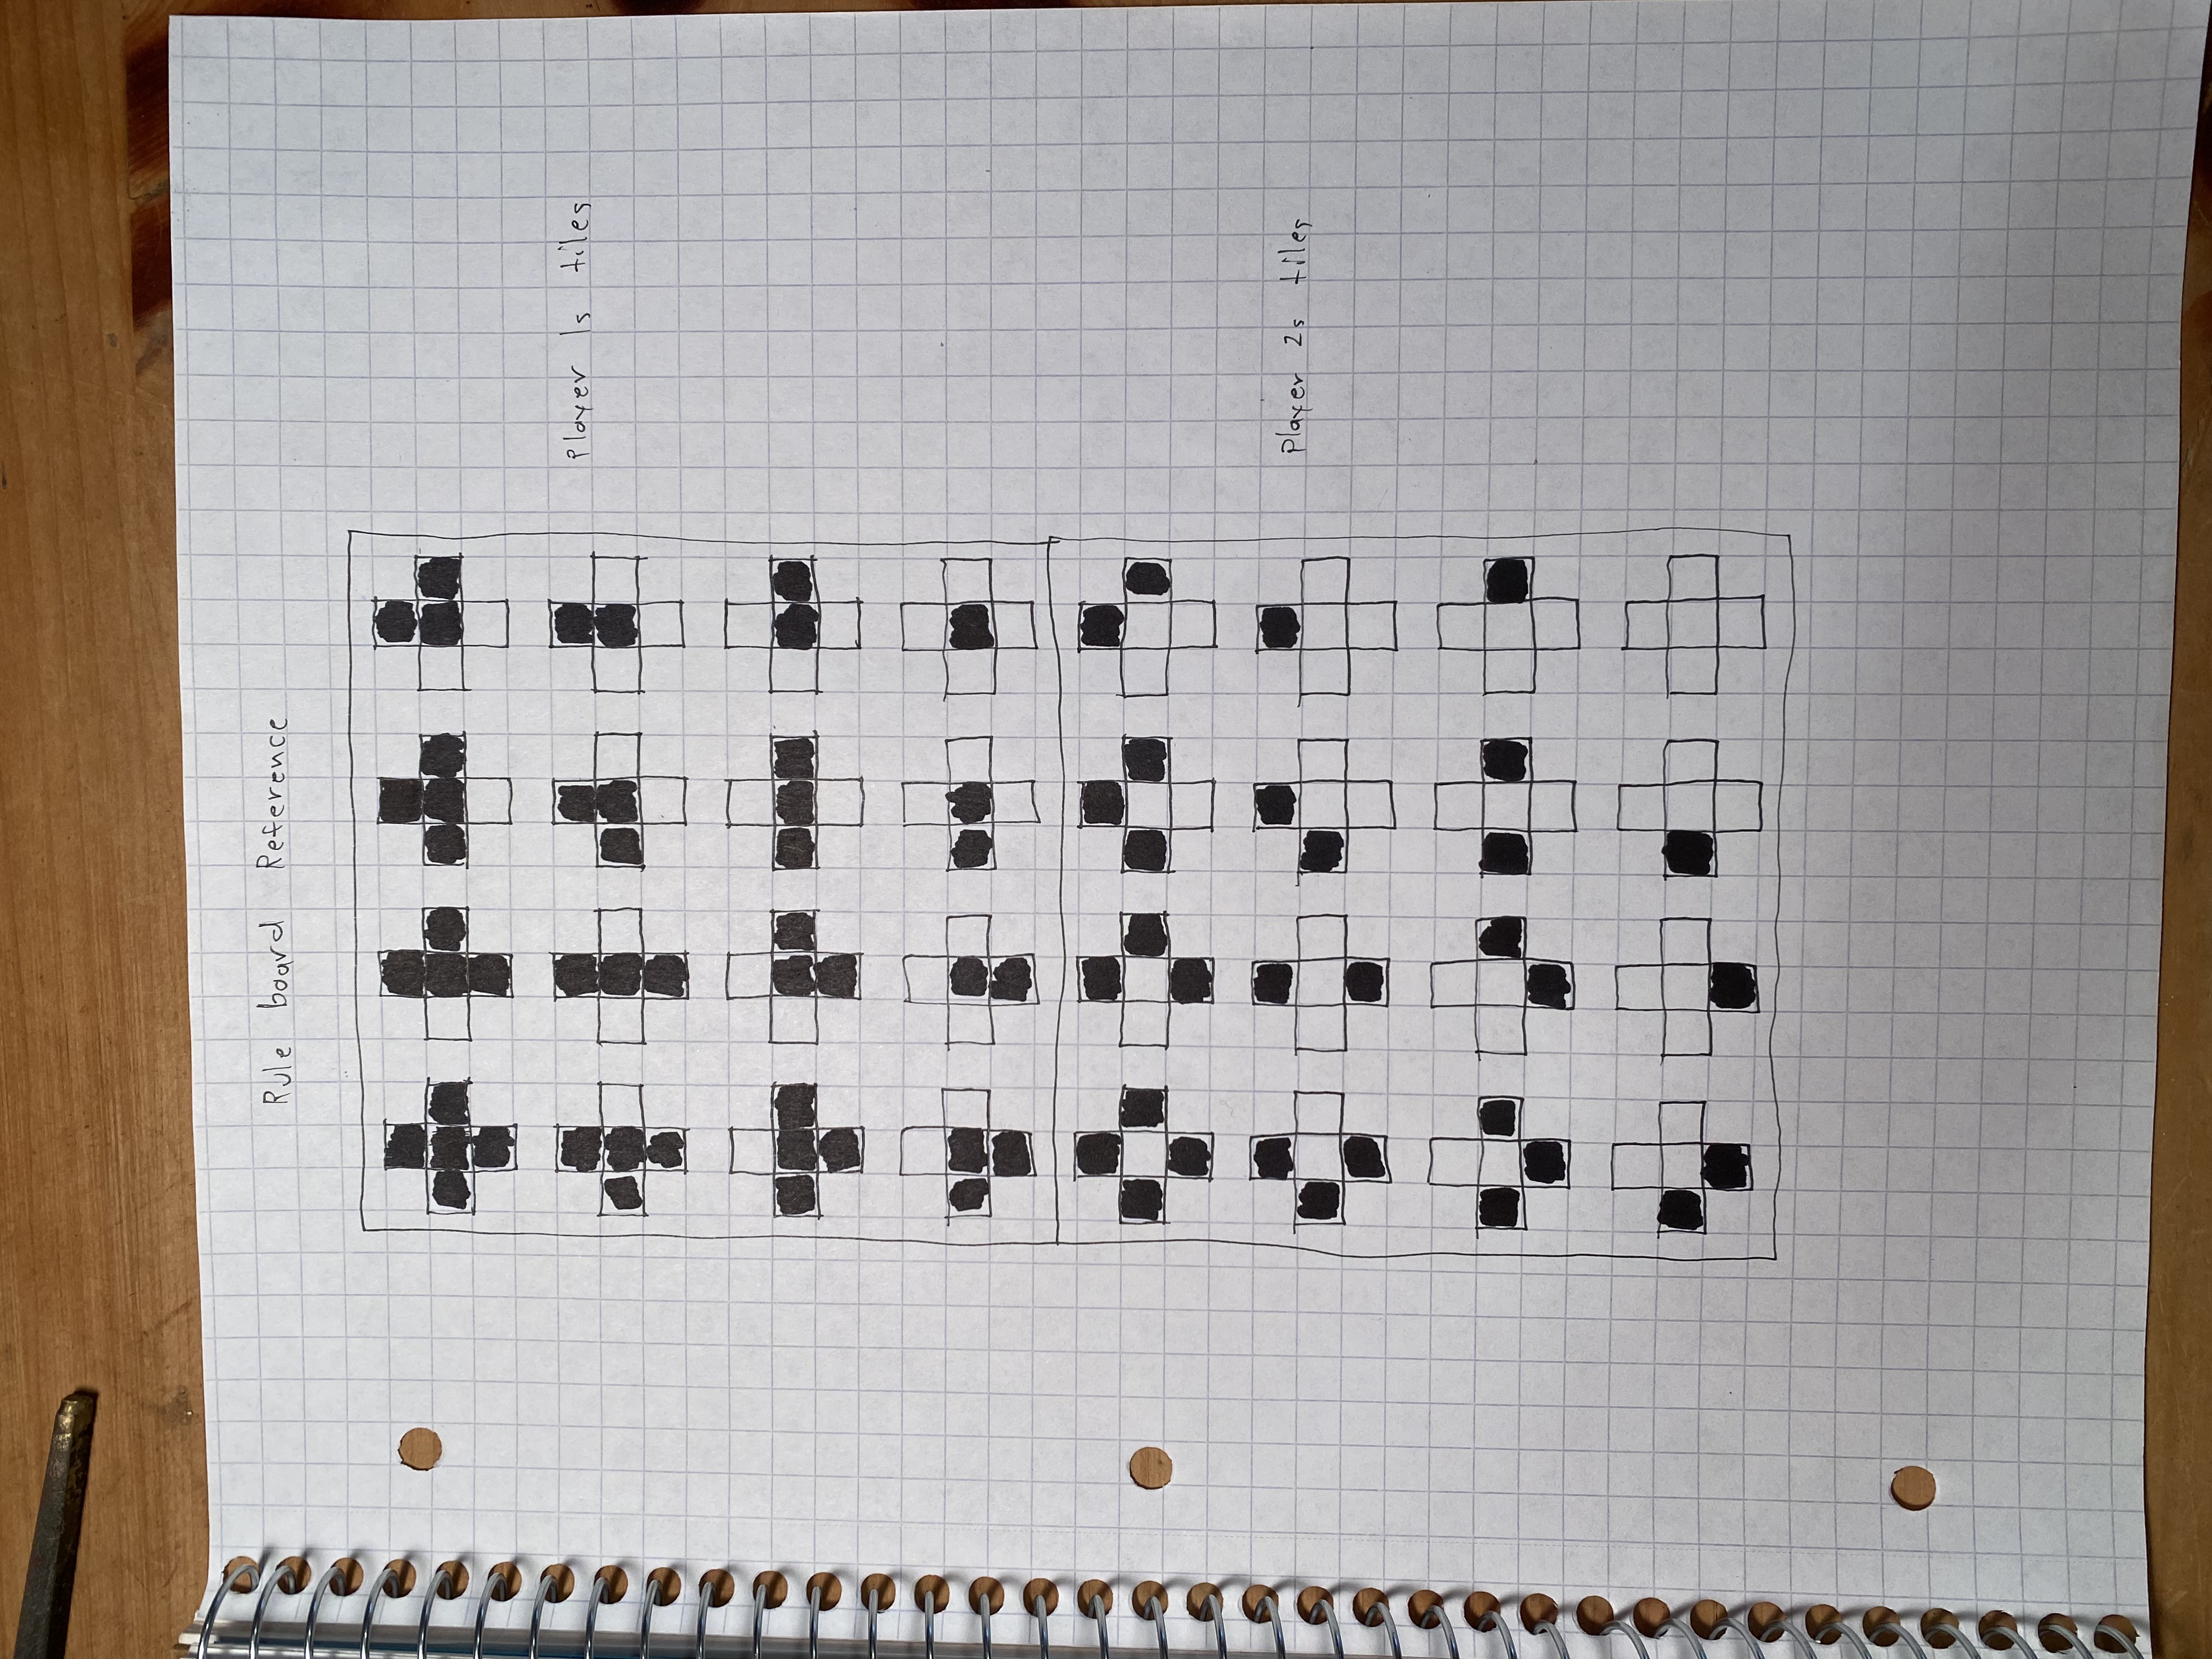 Rule board Reference
Player 1s tiles
Player 2s tiles